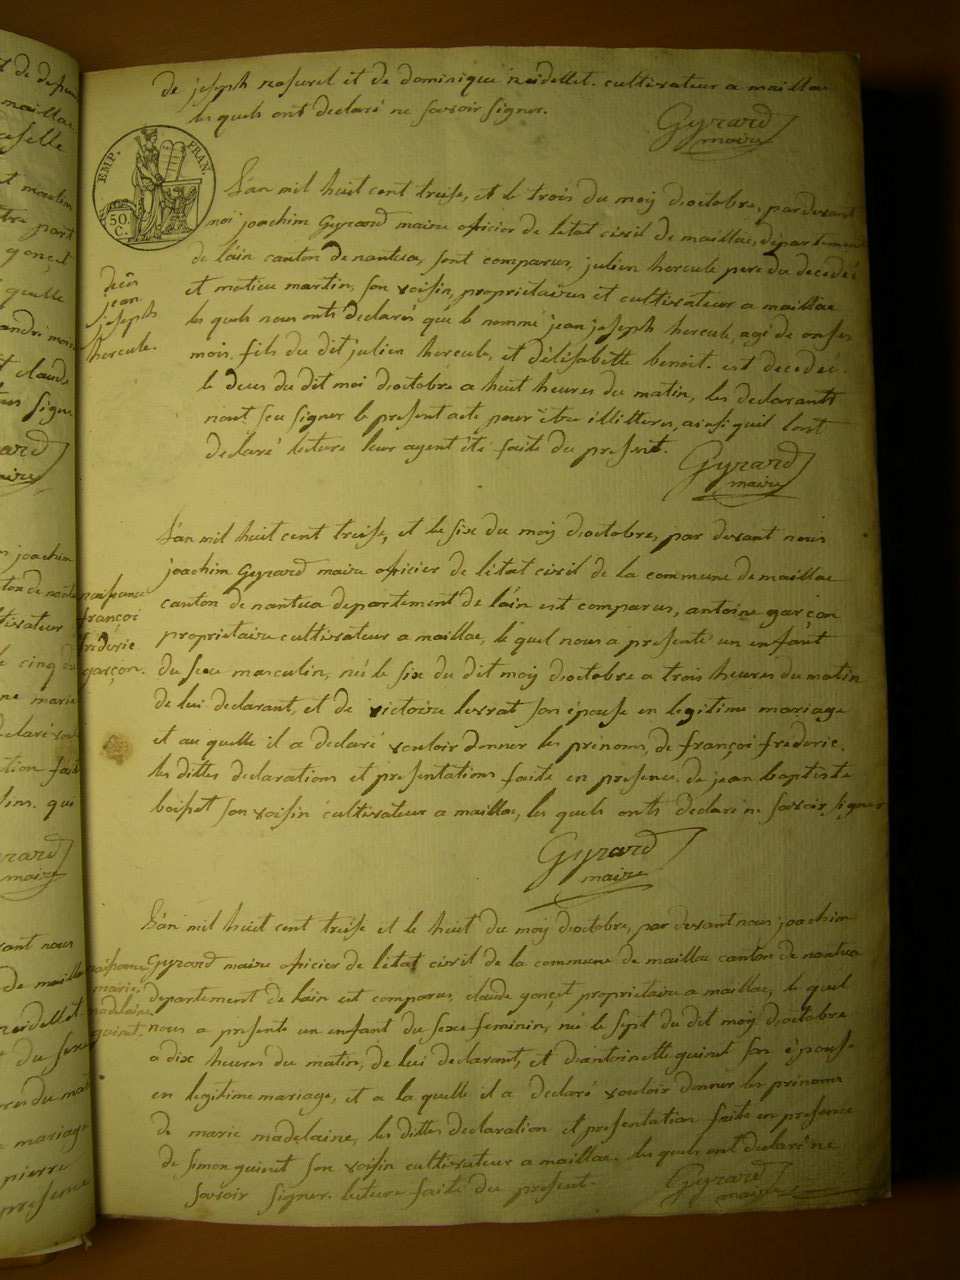 de joseph nesurel et de dominique neidellet cultivateur a maillac
les quels ont declaré ne savoir signer.
Gyrard
maire
EMP. FRAN.
50 C.
L'an mil huit cent treise, et le trois du moy d'octobre, par devant
noi joachim Gyrard maire oficier de l'etat civil de maillac, département
de l'ain canton de nantua, sont comparus, julien hercule pere du decedé
et matieu martin, son voisin, proprietaires et cultivateur a maillac
les quels nous onts declarés que le nommé jean joseph hercule, agé de onses
mois, fils du dit julien hercule, et d'élisabette benoit. est decedé.
le deus du dit moi d'octobre a huit heures du matin, les declarants
nont seu signer le present acte pour être illitteres, ainsi quil lont
declaré lecture leur ayent été faite du present.
décès
jean
joseph
hercule.
Gyrard
maire
L'an mil huit cent treise, et le six du moy d'octobre, par devant nous
joachim Gyrard maire oficier de l'état civil de la commune de maillac
canton de nantua departement de l'ain est comparus, antoine garçon
proprietaire cultivateur a maillac, le quel nous a presenté un enfant
du sexe masculin, né le six du dit moy d'octobre a trois heures du matin
de lui declarant, et de victoire levrat son épouse en legitime mariage
et au quelle il a declaré vouloir donner les prénoms, de françoi frederic.
les dittes declarations et presentations faite en presence de jean baptiste
boisset son voisin cultivateur a maillac, les quels onts declaré ne savoir signer
naissance
françoi
frederic
garçon.
Gyrard
maire
L'an mil huit cent treise et le huit du moy d'octobre, par devant nous joachim
Gyrard maire oficier de l'état civil de la commune de maillac canton de nantua
departement de l'ain est comparus, claude gonçet proprietaire a maillac, le quel
nous a presenté un enfant du sexe feminin, né le sept du dit moy d'octobre
a dix heures du matin, de lui declarant, et d'antoinette guinet son épouse
en legitime mariage, et a la quelle il a declaré vouloir donner les prénoms
de marie madelaine, les dittes declaration et presentation faite en presence
de simon guinet son voisin cultivateur a maillac. les quels ont declaré ne
savoir signer. lecture faite du present.
naissance
marie
madelaine
Gyrard
maire